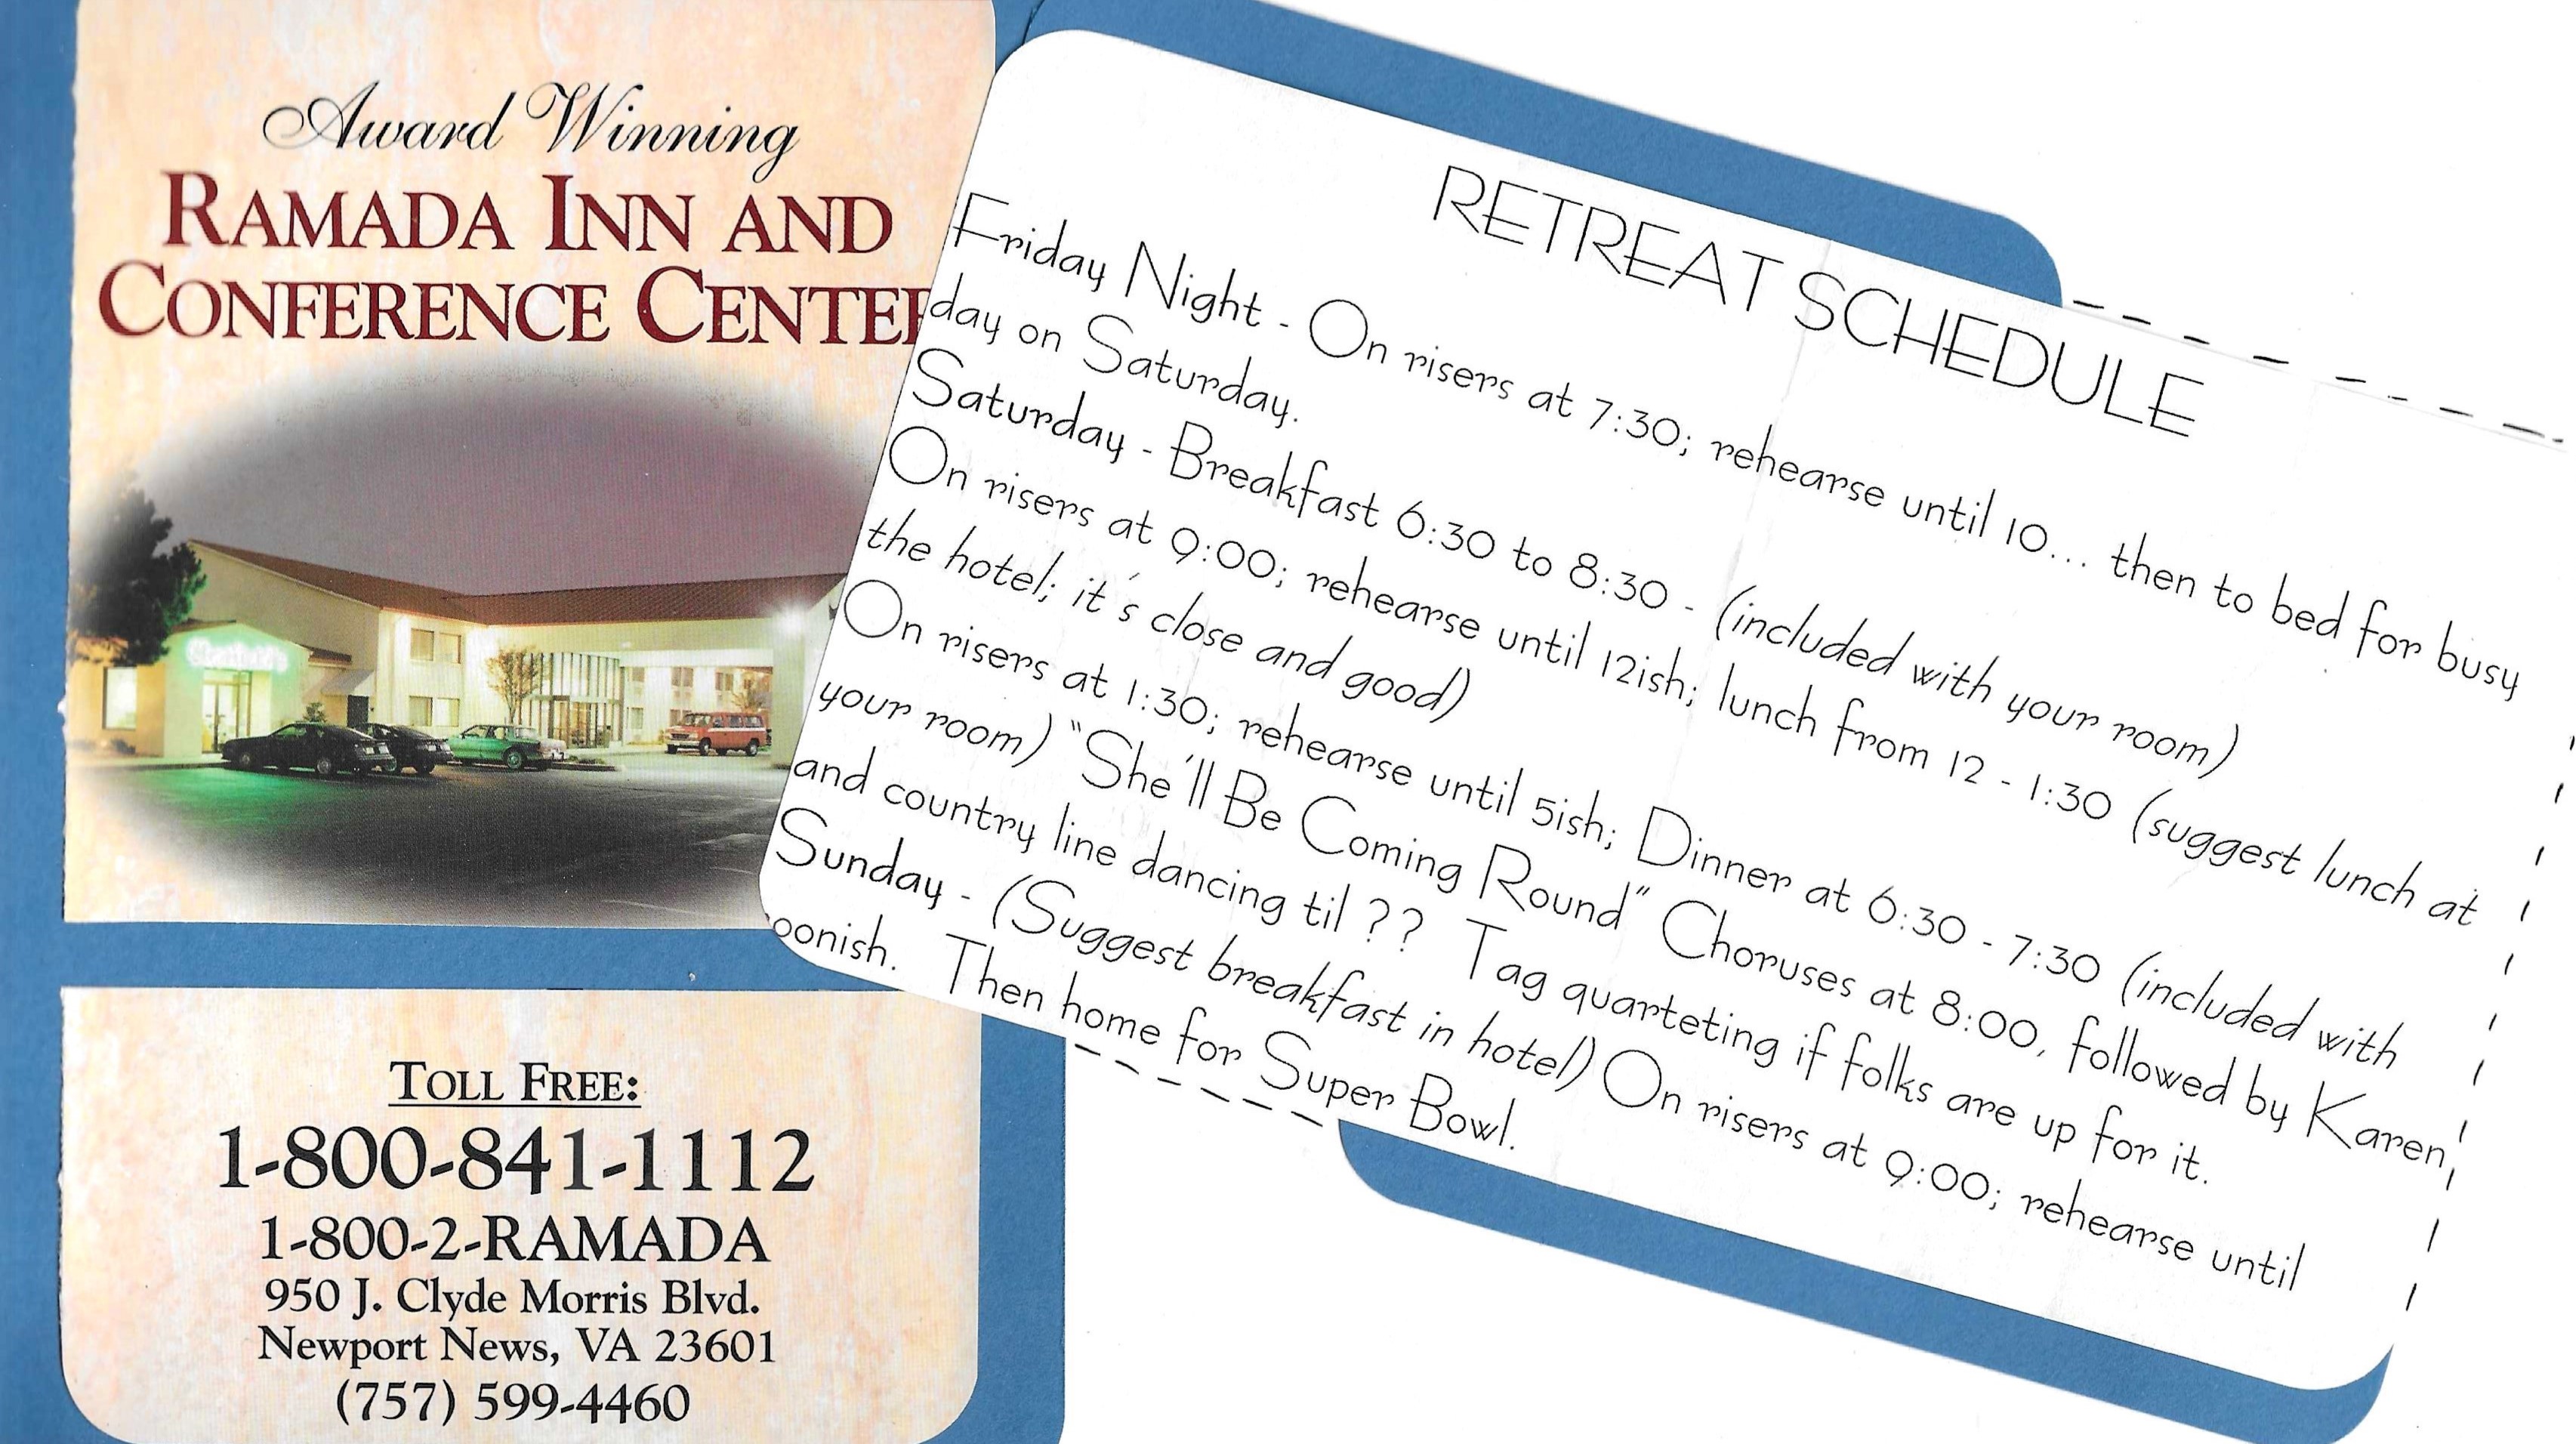 Award Winning
RAMADA INN AND
CONFERENCE CENTER
TOLL FREE:
1-800-841-1112
1-800-2-RAMADA
950 J. Clyde Morris Blvd.
Newport News, VA 23601
(757) 599-4460
RETREAT SCHEDULE
Friday Night - On risers at 7:30; rehearse until 10... then to bed for busy
day on Saturday.
Saturday - Breakfast 6:30 to 8:30 - (included with your room)
On risers at 9:00; rehearse until 12ish; lunch from 12 - 1:30 (suggest lunch at
the hotel; it's close and good)
On risers at 1:30; rehearse until 5ish; Dinner at 6:30 - 7:30 (included with
your room) "She'll Be Coming Round" Choruses at 8:00, followed by Karen,
and country line dancing til ?? Tag quarteting if folks are up for it.
Sunday - (Suggest breakfast in hotel) On risers at 9:00; rehearse until
oonish. Then home for Super Bowl.